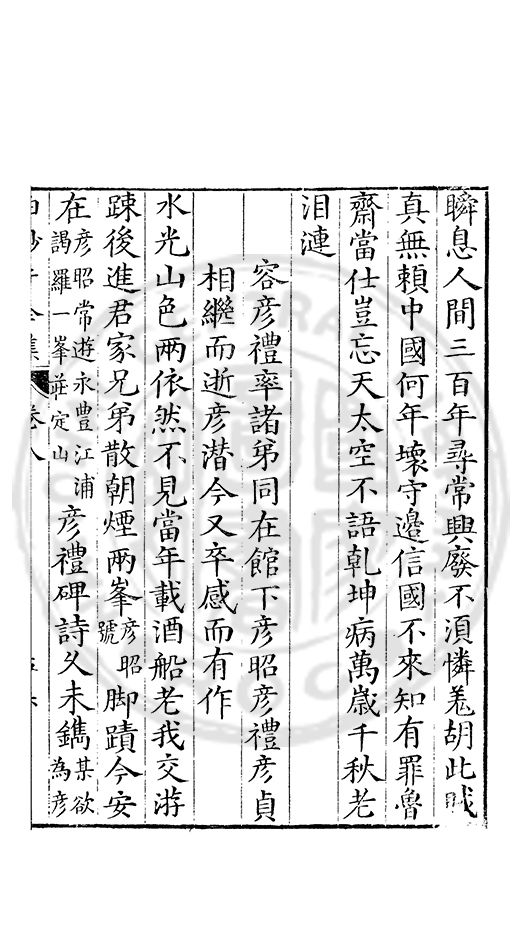 瞬息人間三百年尋常興廢不須憐羗胡此賊
真無賴中國何年壞守邊信國不來知有罪魯
齋當仕豈忘天太空不語乾坤病萬歲千秋老
泪漣
容彦禮率諸弟同在館下彦昭彦禮彦貞
相繼而逝彦潜今又卒感而有作
水光山色兩依然不見當年載酒船老我交游
踈後進君家兄弟散朝煙兩峯彦昭號脚蹟今安
在彦昭常遊永豐江浦謁羅一峯莊定山彦禮碑詩久未鐫某欲為彦
白沙子全集 卷八